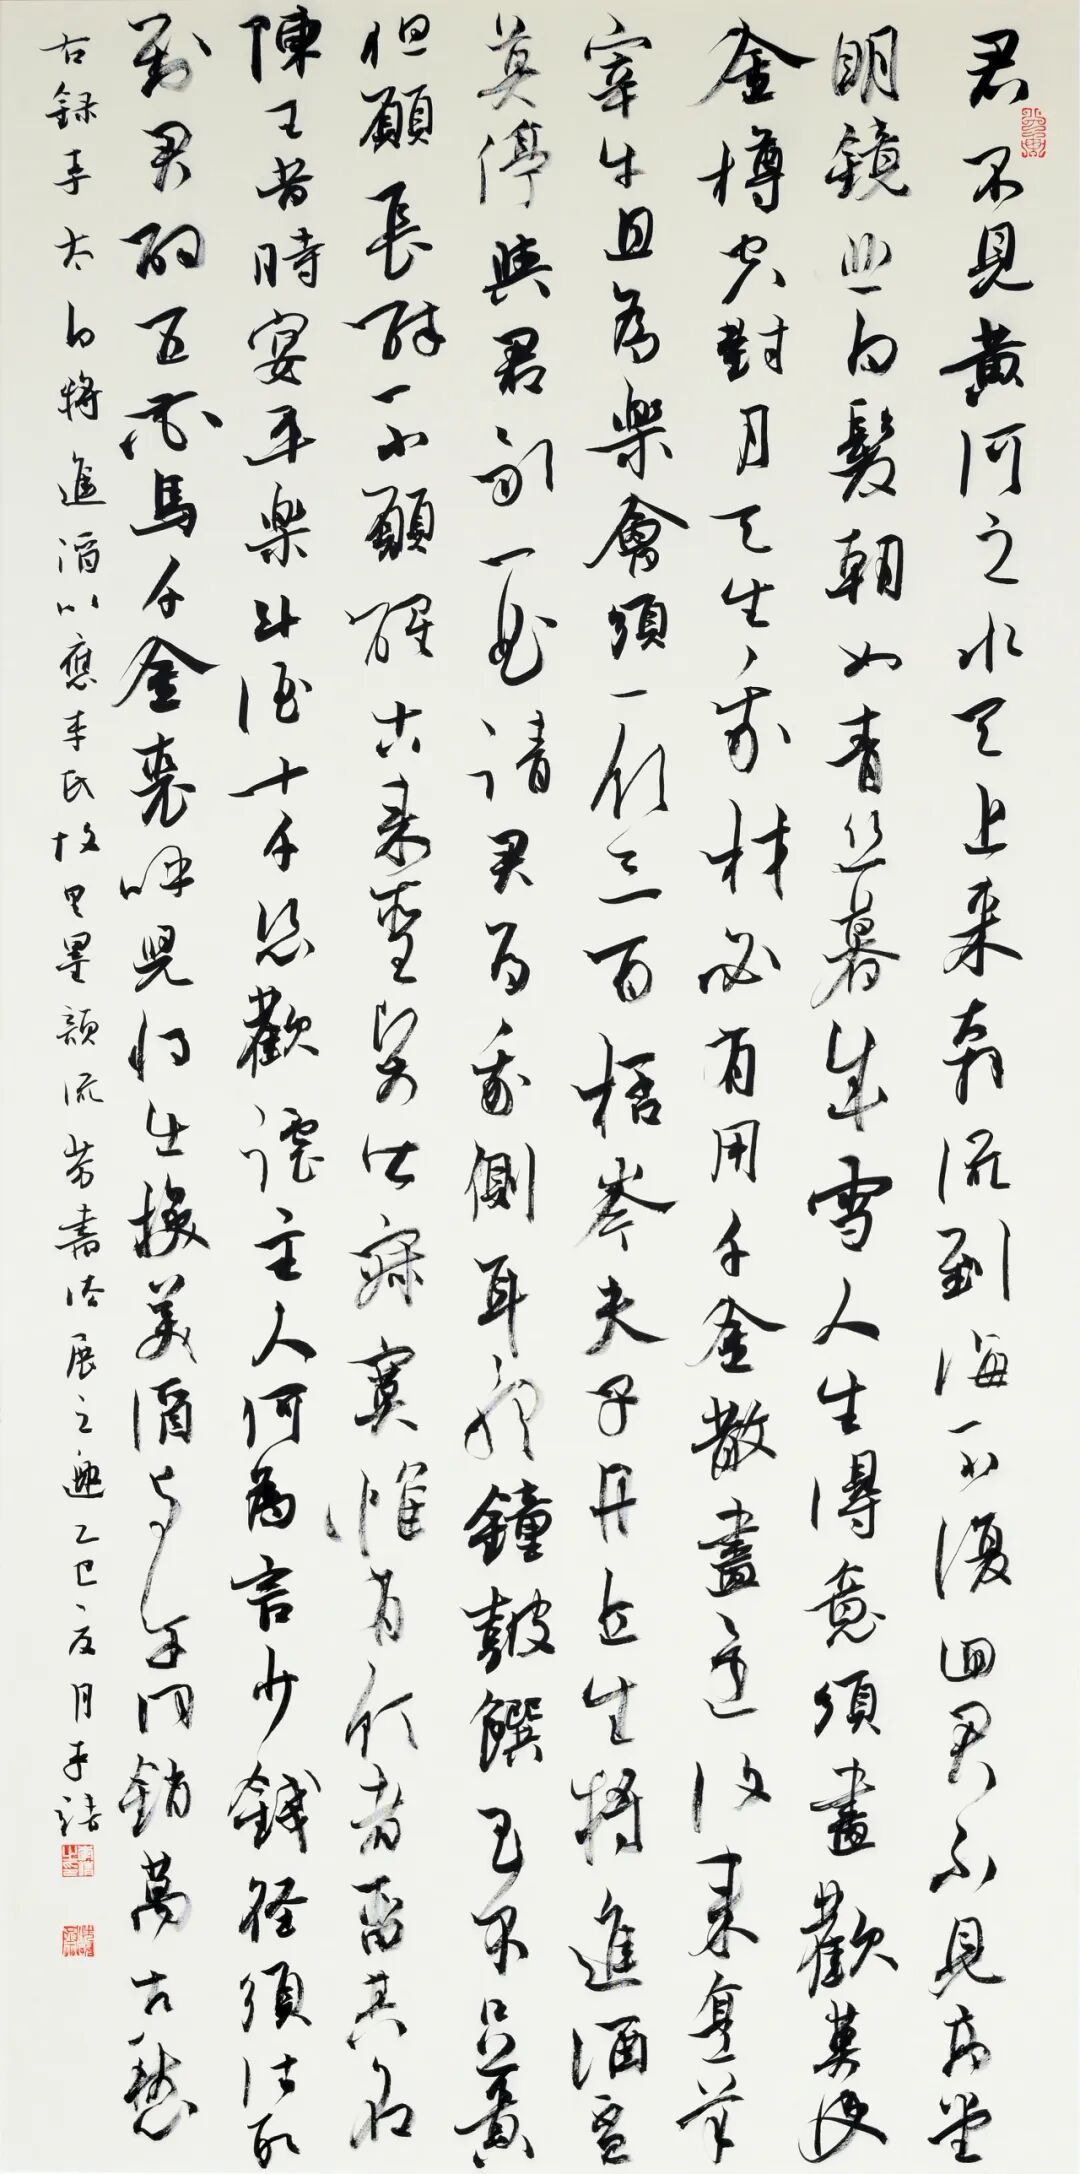 君不見黃河之水天上來奔流到海不復迴君不見高堂
明鏡悲白髮朝如青絲暮成雪人生得意須盡歡莫使
金樽空對月天生我材必有用千金散盡還復來烹羊
宰牛且為樂會須一飲三百桮岑夫子丹丘生將進酒盃
莫停與君歌一曲請君為我側耳聽鐘鼓饌玉不足貴
但願長醉不願醒古來聖賢皆寂寞惟有飲者留其名
陳王昔時宴平樂斗酒十千恣歡謔主人何為言少錢徑須沽取
對君酌五花馬千金裘呼兒將出換美酒與爾同銷萬古愁
右録李太白將進酒以應李氏故里墨韻流芳書法展之邀乙巳夏月李